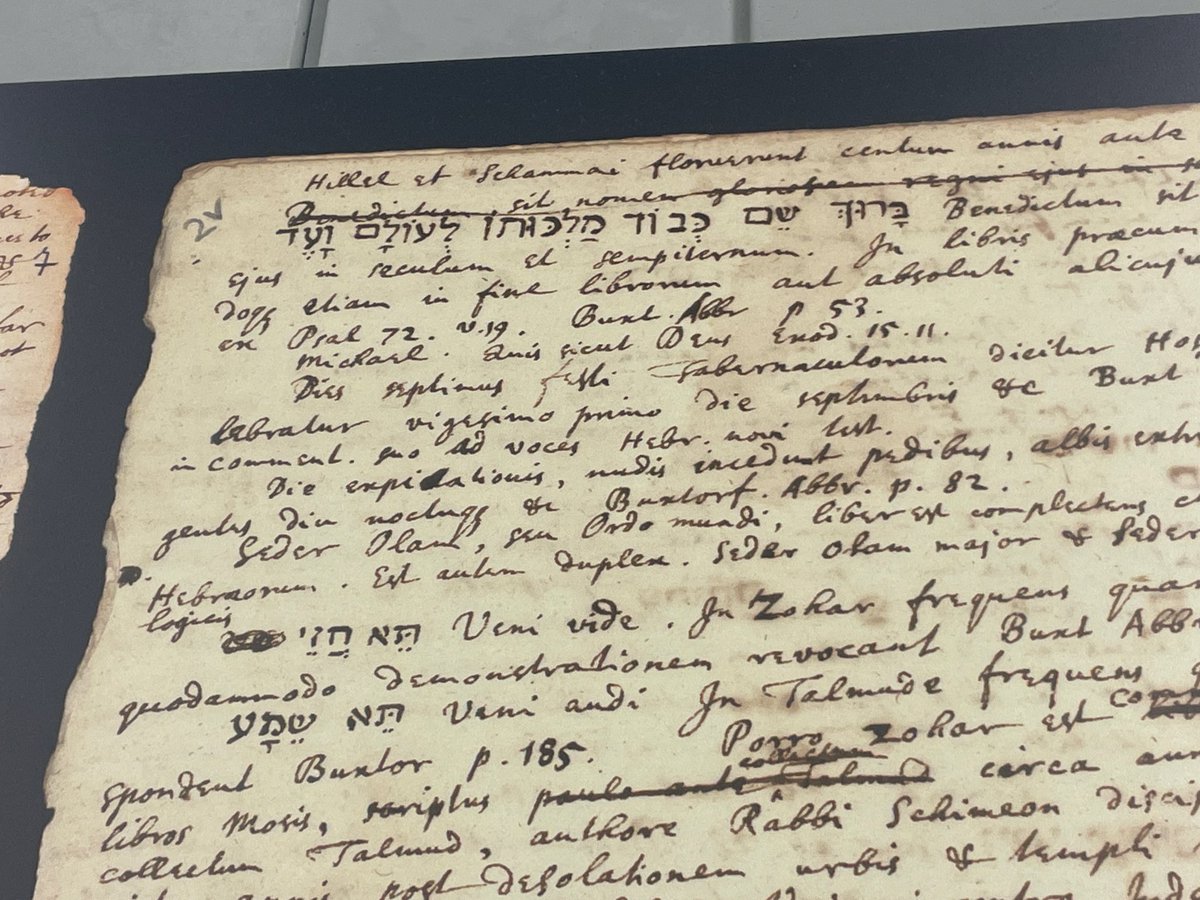 Hillel et Schammai floruerunt centum annis ante
Benedictum sit nomen gloriosum regni ejus in
בָּרוּךְ שֵׁם כְּבוֹד מַלְכוּתוֹ לְעוֹלָם וָעֶד Benedictum sit
ejus in seculum et sempiternum. In libris præcum
etiam in fine librorum aut absoluti alicuju
ex Psal 72. v.19. Buxt. Abbr p 53.
Michael. Quis sicut Deus Exod. 15.11.
Dies septimus festi Tabernaculorum dicitur Hos
lebratur vigesimo primo die septembris &c Buxt
in comment. suo ad voces Hebr. novi test.
Die expiationis, nudis incedunt pedibus, albis
gentes diu noctuqꝫ &c Buxtorf. Abbr. p. 82.
Seder Olam, seu Ordo mundi, liber est complectens c
Hebraeorum. Est autem duplex. Seder olam major & Seder
logicis
תֵּא חֲזֵי Veni vide. In Zohar frequens qua
quodammodo demonstrationem revocant Buxt Abbr
תֵּא שְׁמַע Veni audi In Talmude frequens
spondent Buxtor p. 185. Porro Zohar est com
collectum
libros Mosis, scriptus paulo ante Talmud circa
collectum Talmud, authore Rabbi Schimeon disci
annis post desolationem urbis & templi